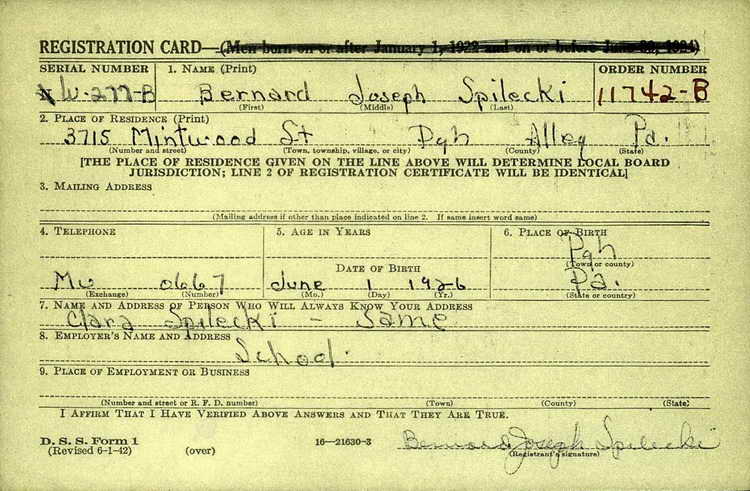 REGISTRATION CARD—(Men born on or after January 1, 1922 and on or before June 30, 1924)
SERIAL NUMBER 1. NAME (Print) ORDER NUMBER
W-277-B Bernard Joseph Spilecki 11742-B
(First) (Middle) (Last)
2. PLACE OF RESIDENCE (Print)
3715 Mintwood St Pgh Alleg Pa.
(Number and street) (Town, township, village, or city) (County) (State)
[THE PLACE OF RESIDENCE GIVEN ON THE LINE ABOVE WILL DETERMINE LOCAL BOARD
JURISDICTION; LINE 2 OF REGISTRATION CERTIFICATE WILL BE IDENTICAL]
3. MAILING ADDRESS
(Mailing address if other than place indicated on line 2. If same insert word same)
4. TELEPHONE 5. AGE IN YEARS 6. PLACE OF BIRTH
Pgh
(Town or county)
DATE OF BIRTH
Mu 0667 June 1 1926 Pa.
(Exchange) (Number) (Mo.) (Day) (Yr.) (State or country)
7. NAME AND ADDRESS OF PERSON WHO WILL ALWAYS KNOW YOUR ADDRESS
Clara Spilecki - Same
8. EMPLOYER'S NAME AND ADDRESS
School.
9. PLACE OF EMPLOYMENT OR BUSINESS
(Number and street or R. F. D. number) (Town) (County) (State)
I AFFIRM THAT I HAVE VERIFIED ABOVE ANSWERS AND THAT THEY ARE TRUE.
D. S. S. Form 1
(Revised 6-1-42) (over) 16—21630-3 Bernard Joseph Spilecki
(Registrant's signature)